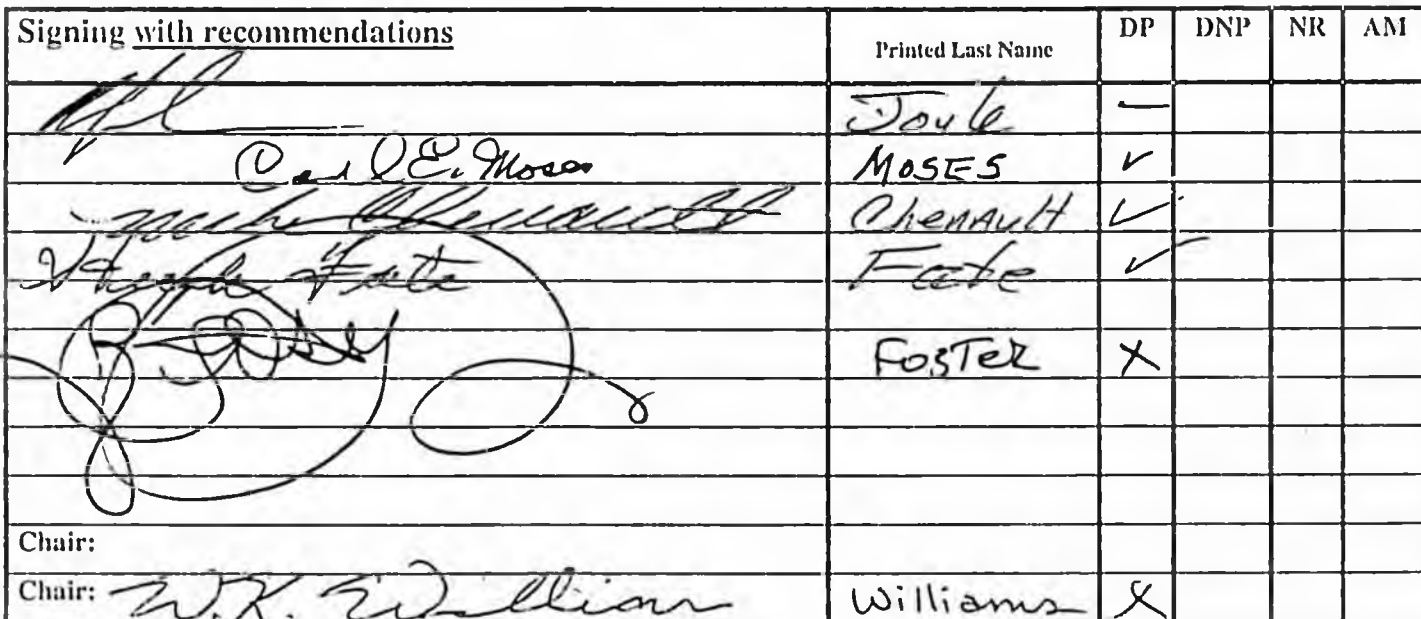 Signing with recommendations Printed Last Name DP DNP NR AM
Joule —
Carl E. Moses MOSES ✓
Mike Chenault Chenault ✓
Hugh Fate Fate ✓
Foster FOSTER X
Chair:
Chair: W.K. Williams Williams X